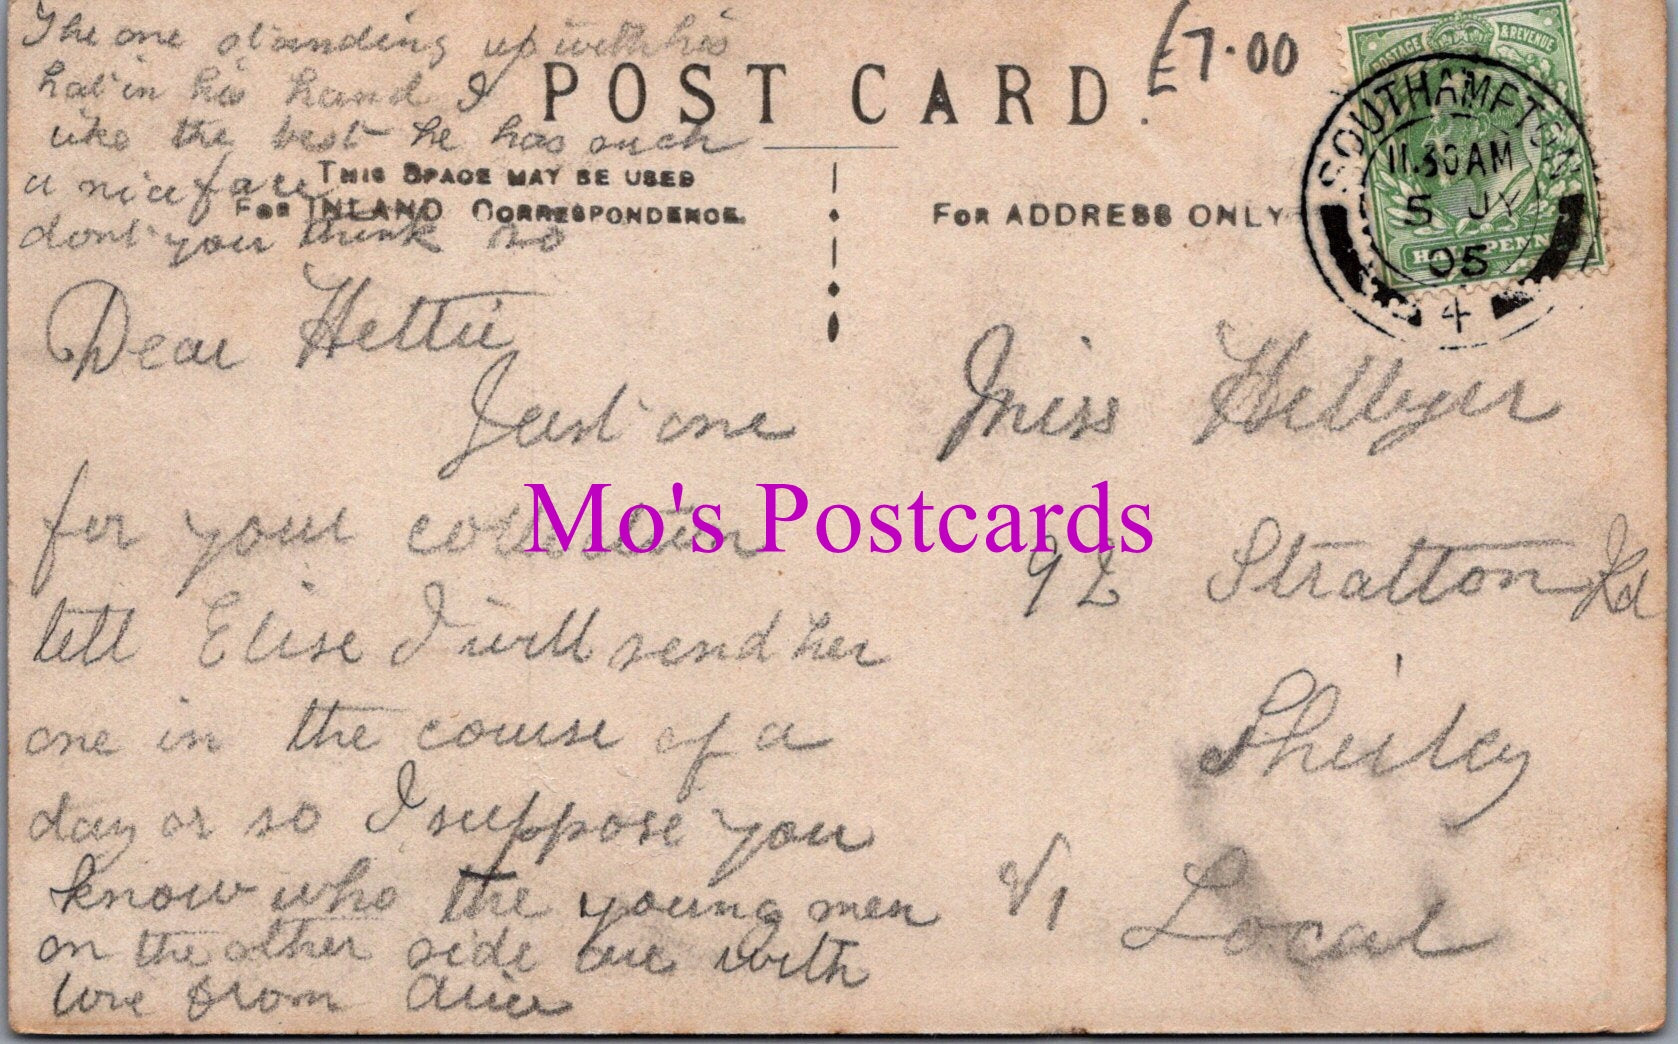 The one standing up with his
hat in his hand I
like the best he has such
a nice face
dont you think so
£7.00
POST CARD.
THIS SPACE MAY BE USED
FOR INLAND CORRESPONDENCE.
FOR ADDRESS ONLY
POSTAGE & REVENUE
HALFPENNY
SOUTHAMPTON
11.30 AM
5 JY
05
4
Dear Hettie
Just one
for your collection
tell Elise I will send her
one in the course of a
day or so I suppose you
know who the young men
on the other side are with
love from Alice
Miss Hellyer
92 Stratton Rd
Shirley
Local
Mo's Postcards